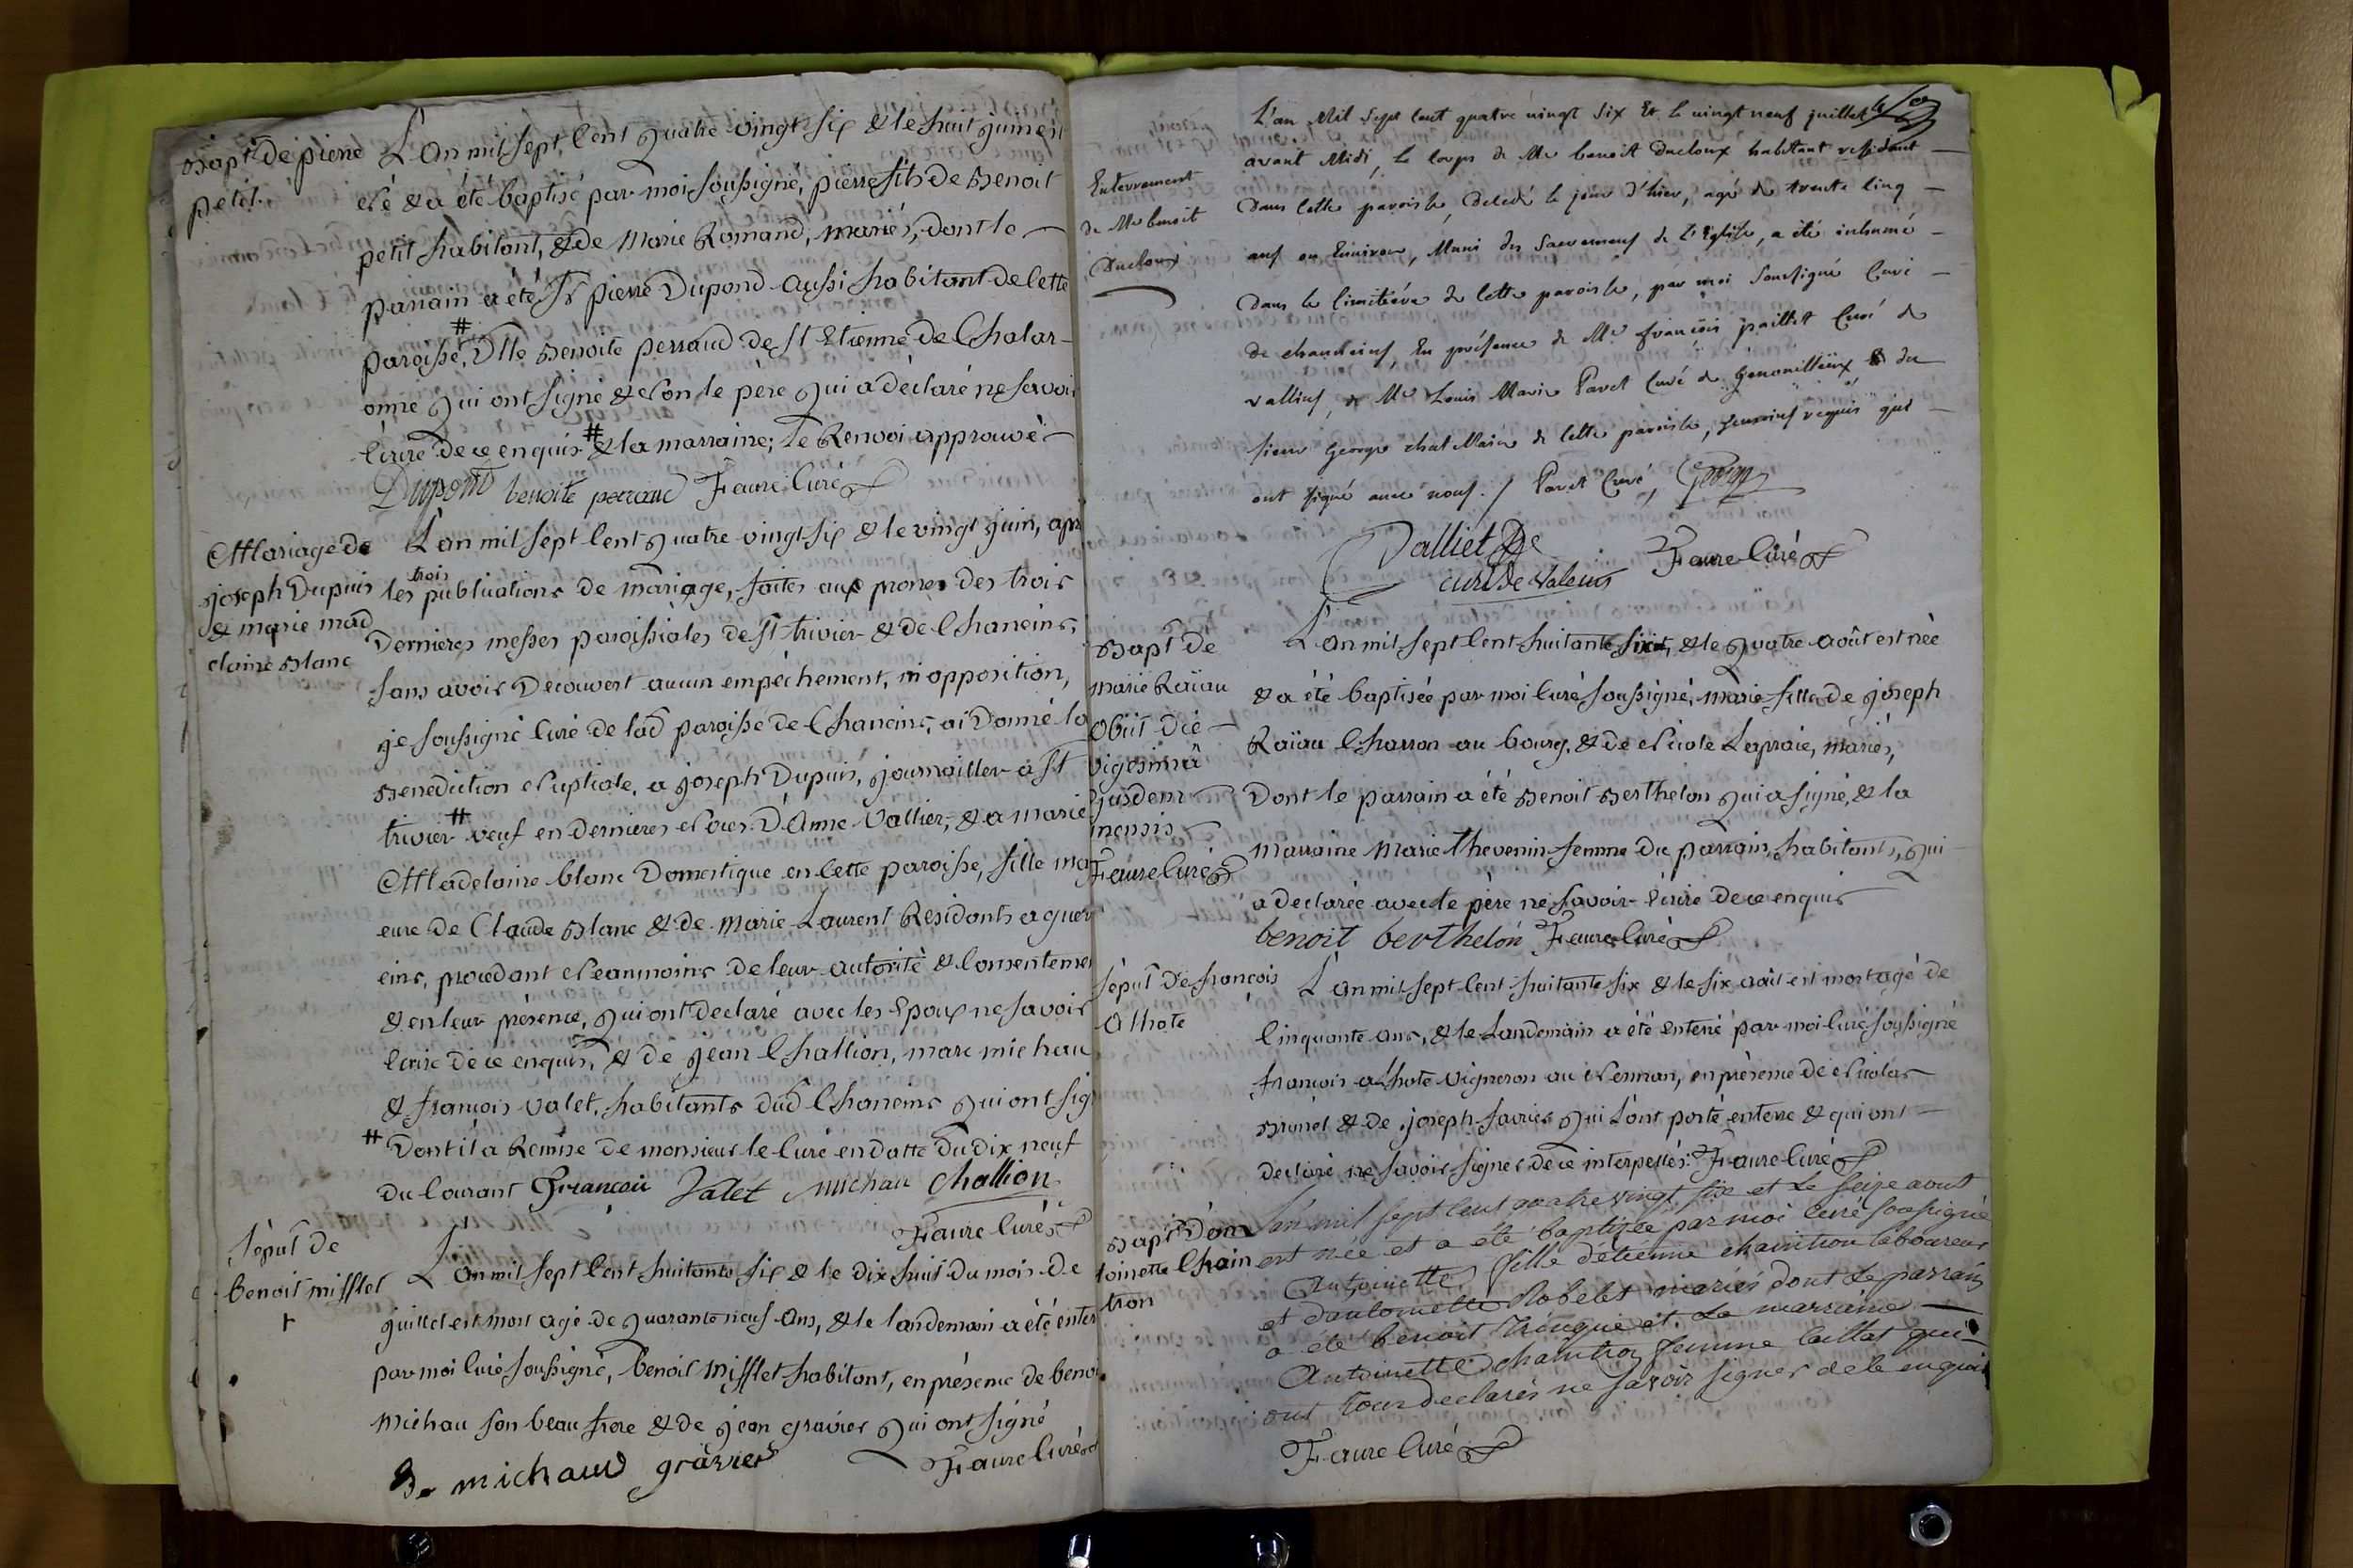 Bapt de pierre
petit.
L'an mil sept cent quatre vingt six & le huit juin est
né & a été baptisé par moi soussigné, pierre fils de Benoit
petit habitant, & de Marie Romand, mariés, dont le
parrain a été Sr pierre Dupond aussi habitant de cette
paroisse, # Dlle Benoite perraud de St Etienne de Chalar-
onne qui ont signé & non le père qui a déclaré ne savoir
écrire de ce enquis # & la marraine; le Renvoi approuvé
Dupond benoite perraud Faure Curé
Mariage de
joseph Dupuis
& marie mad
elaine Blanc
L'an mil sept cent quatre vingt six & le vingt juin, apr
les trois publications de mariage, faites aux prones des trois
Dernieres messes paroissiales de St trivier & de Chaneins,
sans avoir Decouvert aucun empéchement, ni opposition,
je soussigné Curé de lad paroisse de Chaneins, ai Donné la
Benediction Nuptiale, a joseph Dupuis, journaillier a St
trivier # veuf en dernieres Noces D'Anne Vallier, & a marie
Madelaine blanc Domestique en cette paroisse, fille maj
eure de Claude Blanc & de Marie Laurent Residants a guer
eins, procedant Neanmoins de leur autorité & Consenteme
& en leur présence, qui ont declaré avec les Epoux ne savoir
écrire de ce enquis, & de jean Challion, marc michau
& françois valet, habitants dud Chaneins qui ont sig
# Dont il a Remise de monsieur le Curé en datte du dix neuf
du Courant françois Valet Michau Challion
Faure Curé
Sépul de
benoit mifflet
+
L'an mil sept cent huitante six & le dix huit du mois de
juillet est mort agé de quarante neuf ans, & le landemain a été enter
par moi Curé soussigné, benoit Mifflet habitant, en présence de beno
Michau son beau frere & de jean gravier qui ont signé
B. michaud gravier Faure Curé
Enterrement
de Me benoit
Ducloux
L'an Mil Sept Cent quatre vingt Six Et le vingt neuf juillet
avant Midi, le Corps de Me benoit Ducloux habitant residant
dans Cette paroisse, Decedé le jour d'hier, agé de trente Cinq
ans ou Environ, Muni des Sacremens de l'Eglise, a été inhumé
dans le Cimitiére de Cette paroisse, par moi Soussigné Curé
de chaneins, En présence de Me françois pailliet Curé de
vallins, & Me Louis Marie Paret Curé de Genouilleux & du
sieur George chal Maire de Cette paroisse, temoins requis qui
ont signé avec nous. / Paret Curé,
Palliet
curé de Valeins Faure Curé
Bapt de
Marie Raïau
obiit die
vigesimâ
ejusdem
mensis
Faure Curé
L'an mil sept cent huitante six, & le quatre août est née
& a été baptisée par moi Curé soussigné, Marie fille de joseph
Raïau Charron au bourg, & de Nicole Lapraie, mariés,
Dont le parrain a été Benoit Berthelon qui a signé, & la
Marraine Marie thevenin femme du parrain, habitants, qui
a declarée avec le père ne savoir écrire de ce enquis
benoit berthelon Faure Curé
Sépul de françois
Alhote
L'an mil sept cent huitante six & le six août est mort agé de
Cinquante ans, & le Landemain a été enterré par moi Curé soussigné
françois alhote vigneron au Nennan, en présence de Nicolas
Brunet & de joseph favrier qui L'ont porté en terre & qui ont
declaré ne savoir signer de ce interpellés. Faure Curé
Bapt D'an
toinette Chain
tron
L'an mil sept cent quatre vingt six et le seize aout
est née et a été baptizée par moi curé soussigné
Antoinette fille d'etienne chaintron laboureur
et dantoinette Robelet mariés dont le parrain
a été benoit trinquie et la marraine
Antoinette chaintron femme caillat qui
ont tour declarés ne savoir signer de ce enquis
Faure Curé